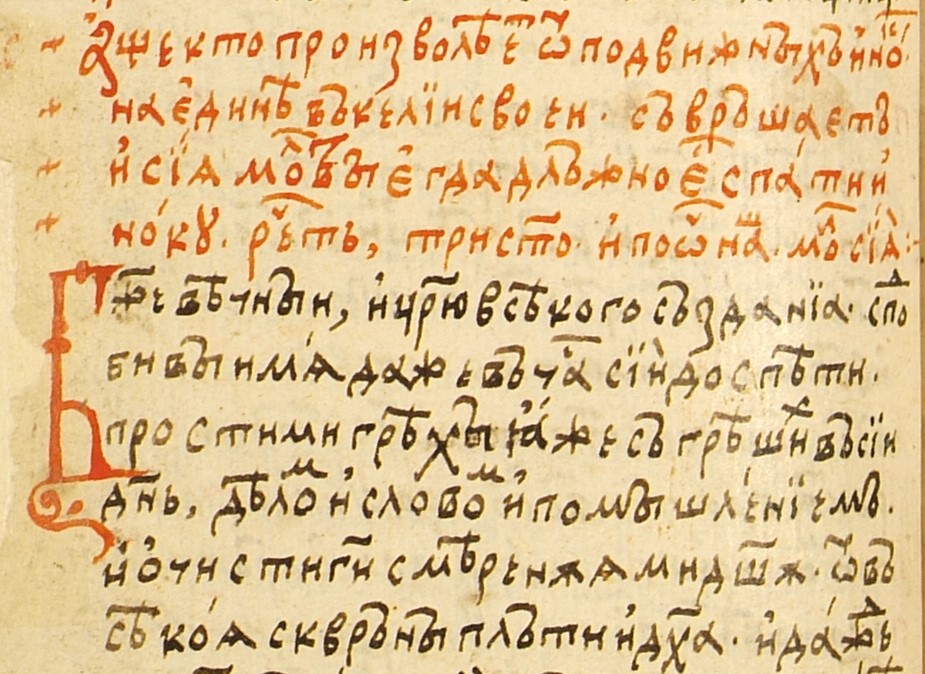 А҆ще кто произволѣе҆т ѿ подвижныхъ и҆но
на є҆динѣ въ келїи своеи · съвръшаетъ
и҆ сїѧ мо҃въі є҆гда длъжно є҆ спа́ти и҆
но́кꙋ · рѣть, тристо · и҆ по ѡ҆ на҃ш · мо҃ сїѧ̀ :
Г҃жѐ вѣчныи, и҆ цр҃ю всѣкого създанїа · спо
бивыи мѧ̀ даже въ ча҃ сїи до спѣти ·
прости ми грѣхы ꙗ҆́же съгрѣшиⷯ въ сїи
дн҃ь, дѣлоⷨ и҆ словоⷨ и҆ помышле́нїемъ ·
и҆ ѻ҆чисти ги҃ смѣренѫѧ ми дш҃ѫ · ѿ въ
сѣко́ѧ скврънъі плъти и҆ дх҃а · и҆ да́жⷣь